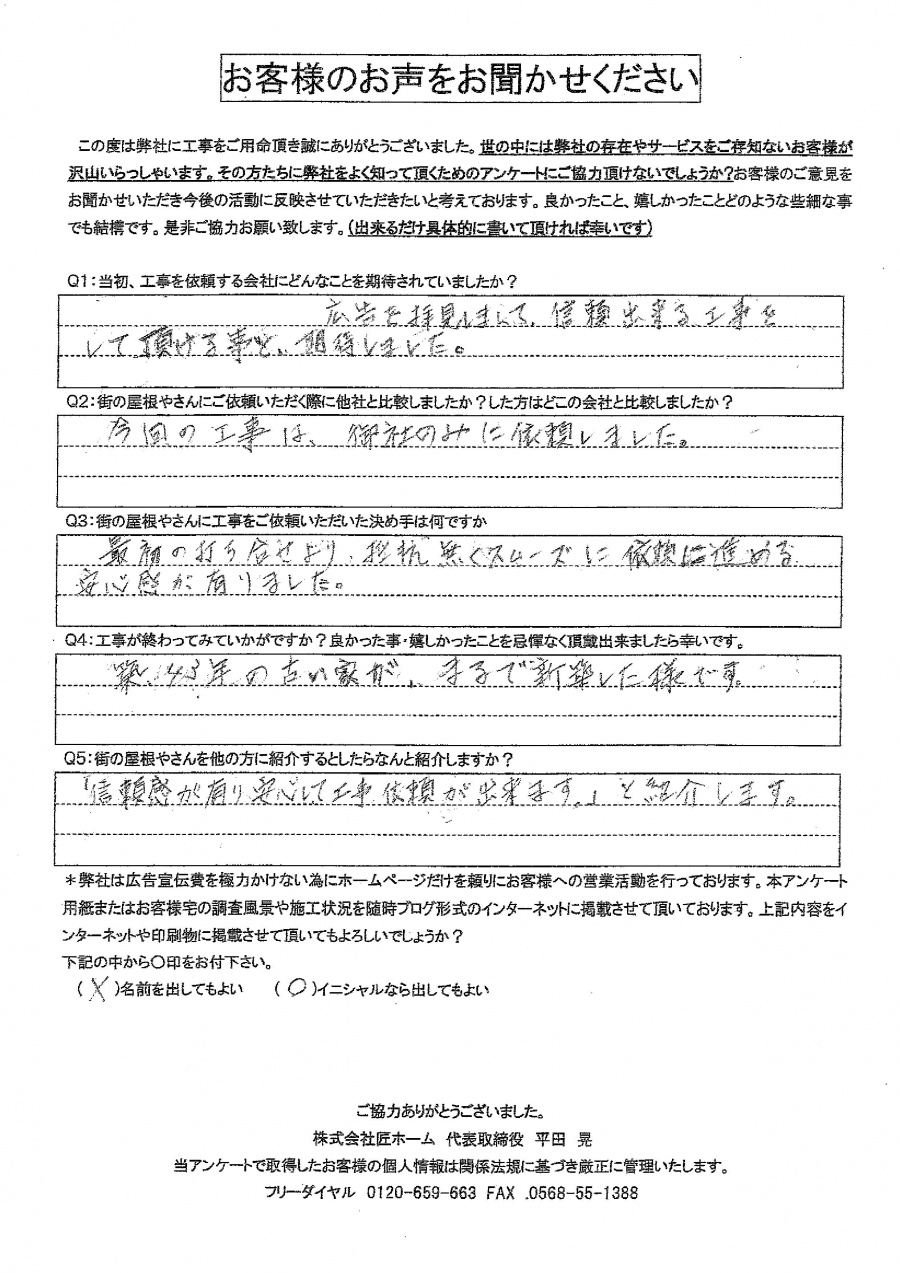 お客様のお声をお聞かせください
この度は弊社に工事をご用命頂き誠にありがとうございました。世の中には弊社の存在やサービスをご存知ないお客様が
沢山いらっしゃいます。その方たちに弊社をよく知って頂くためのアンケートにご協力頂けないでしょうか?お客様のご意見を
お聞かせいただき今後の活動に反映させていただきたいと考えております。良かったこと、嬉しかったことどのような些細な事
でも結構です。是非ご協力お願い致します。(出来るだけ具体的に書いて頂ければ幸いです)
Q1:当初、工事を依頼する会社にどんなことを期待されていましたか?
広告を拝見しまして、信頼出来る工事を
して頂ける事を、期待しました。
Q2:街の屋根やさんにご依頼いただく際に他社と比較しましたか?した方はどこの会社と比較しましたか?
今回の工事は、御社のみに依頼しました。
Q3:街の屋根やさんに工事をご依頼いただいた決め手は何ですか
最初の打ち合せより、抵抗無くスムーズに依頼に進める
安心感が有りました。
Q4:工事が終わってみていかがですか?良かった事・嬉しかったことを忌憚なく頂戴出来ましたら幸いです。
築、43年の古い家が、まるで新築した様です。
Q5:街の屋根やさんを他の方に紹介するとしたらなんと紹介しますか?
「信頼感が有り、安心して工事依頼が出来ます。」と紹介します。
*弊社は広告宣伝費を極力かけない為にホームページだけを頼りにお客様への営業活動を行っております。本アンケート
用紙またはお客様宅の調査風景や施工状況を随時ブログ形式のインターネットに掲載させて頂いております。上記内容をイ
ンターネットや印刷物に掲載させて頂いてもよろしいでしょうか?
下記の中から〇印をお付下さい。
(X)名前を出してもよい (○)イニシャルなら出してもよい
ご協力ありがとうございました。
株式会社匠ホーム 代表取締役 平田 晃
当アンケートで取得したお客様の個人情報は関係法規に基づき厳正に管理いたします。
フリーダイヤル 0120-659-663 FAX .0568-55-1388